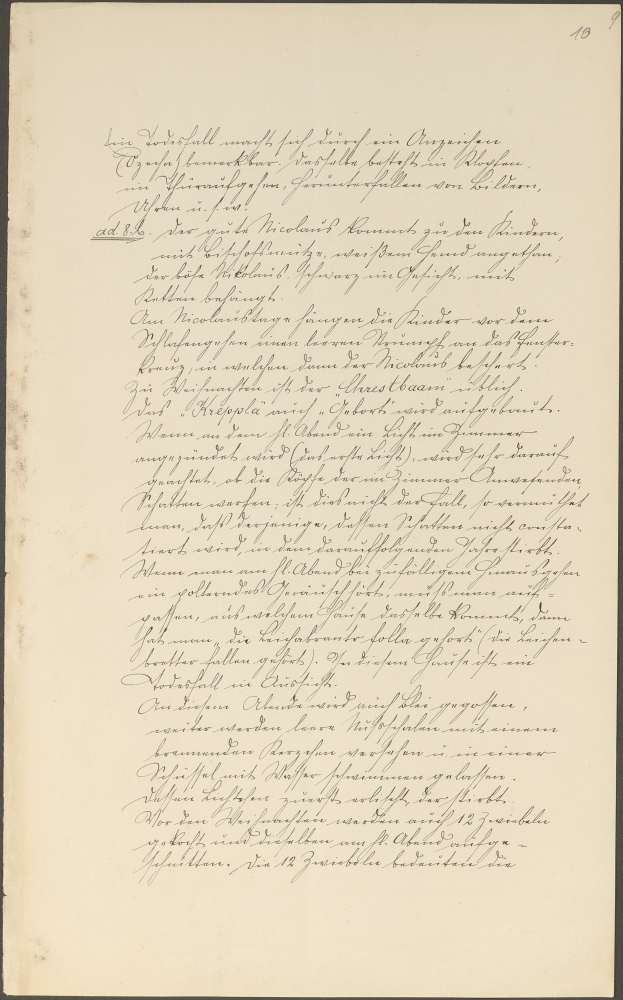 10
9
Ein Todesfall macht sich durch ein Anzeichen
(Ozecha) bemerkbar. Dasselbe besteht in Klopfen
im Thüraufgehen, Herunterfallen von Bildern,
Uhren u. s. w.
ad 8.) Der gute Nicolaus kommt zu den Kindern,
mit Bischofsmütze, weißem Hemd angethan,
der böse Nikolaus schwarz im Gesicht, mit
Ketten behängt.
Am Nicolaustage hängen die Kinder vor dem
Schlafengehen einen leeren Strumpf an das Fenster-
kreuz, in welchen dann der Nicolaus beschert.
Zu Weihnachten ist der "Chrestbaam" üblich.
Das "Krepplà" auch "Gebort" wird aufgebaut.
Wenn an dem hl. Abend ein Licht im Zimmer
angezündet wird (das erste Licht), wird sehr darauf
geachtet, ob die Köpfe der im Zimmer Anwesenden
Schatten werfen; ist dies nicht der Fall, so vermuthet
man, daß derjenige, dessen Schatten nicht consta-
tiert wird, in dem darauffolgenden Jahre stirbt.
Wenn man am hl. Abend bei zufälligem Hinausgehen
ein polterndes Geräusch hört, muß man auf-
passen, aus welchem Hause dasselbe kommt, dann
hat man "die Leichabrater folla gehort" (die Leichen-
bretter fallen gehört). In diesem Hause ist ein
Todesfall in Aussicht.
An diesem Abende wird auch Blei gegossen,
weiter werden leere Nußschalen mit einem
brennenden Kerzchen versehen u. in einer
Schüssel mit Wasser schwimmen gelassen.
Dessen Lichtchen zuerst erlischt, der stirbt.
Vor den Weihnachten werden auch 12 Zwiebeln
gekocht und dieselben am hl. Abend aufge-
schnitten. Die 12 Zwiebeln bedeuten die